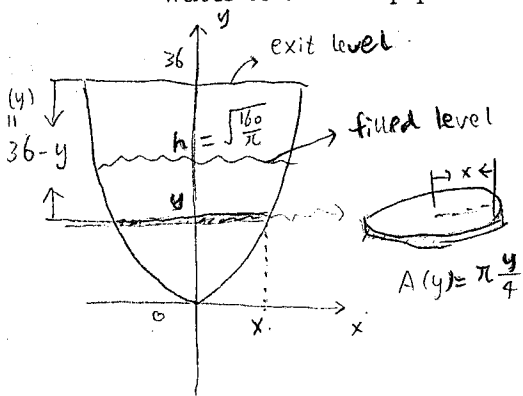 y
36
exit level
(y)
=
36-y
h = √160/π
filled level
y
x
A(y) = π y/4
0
x.
x